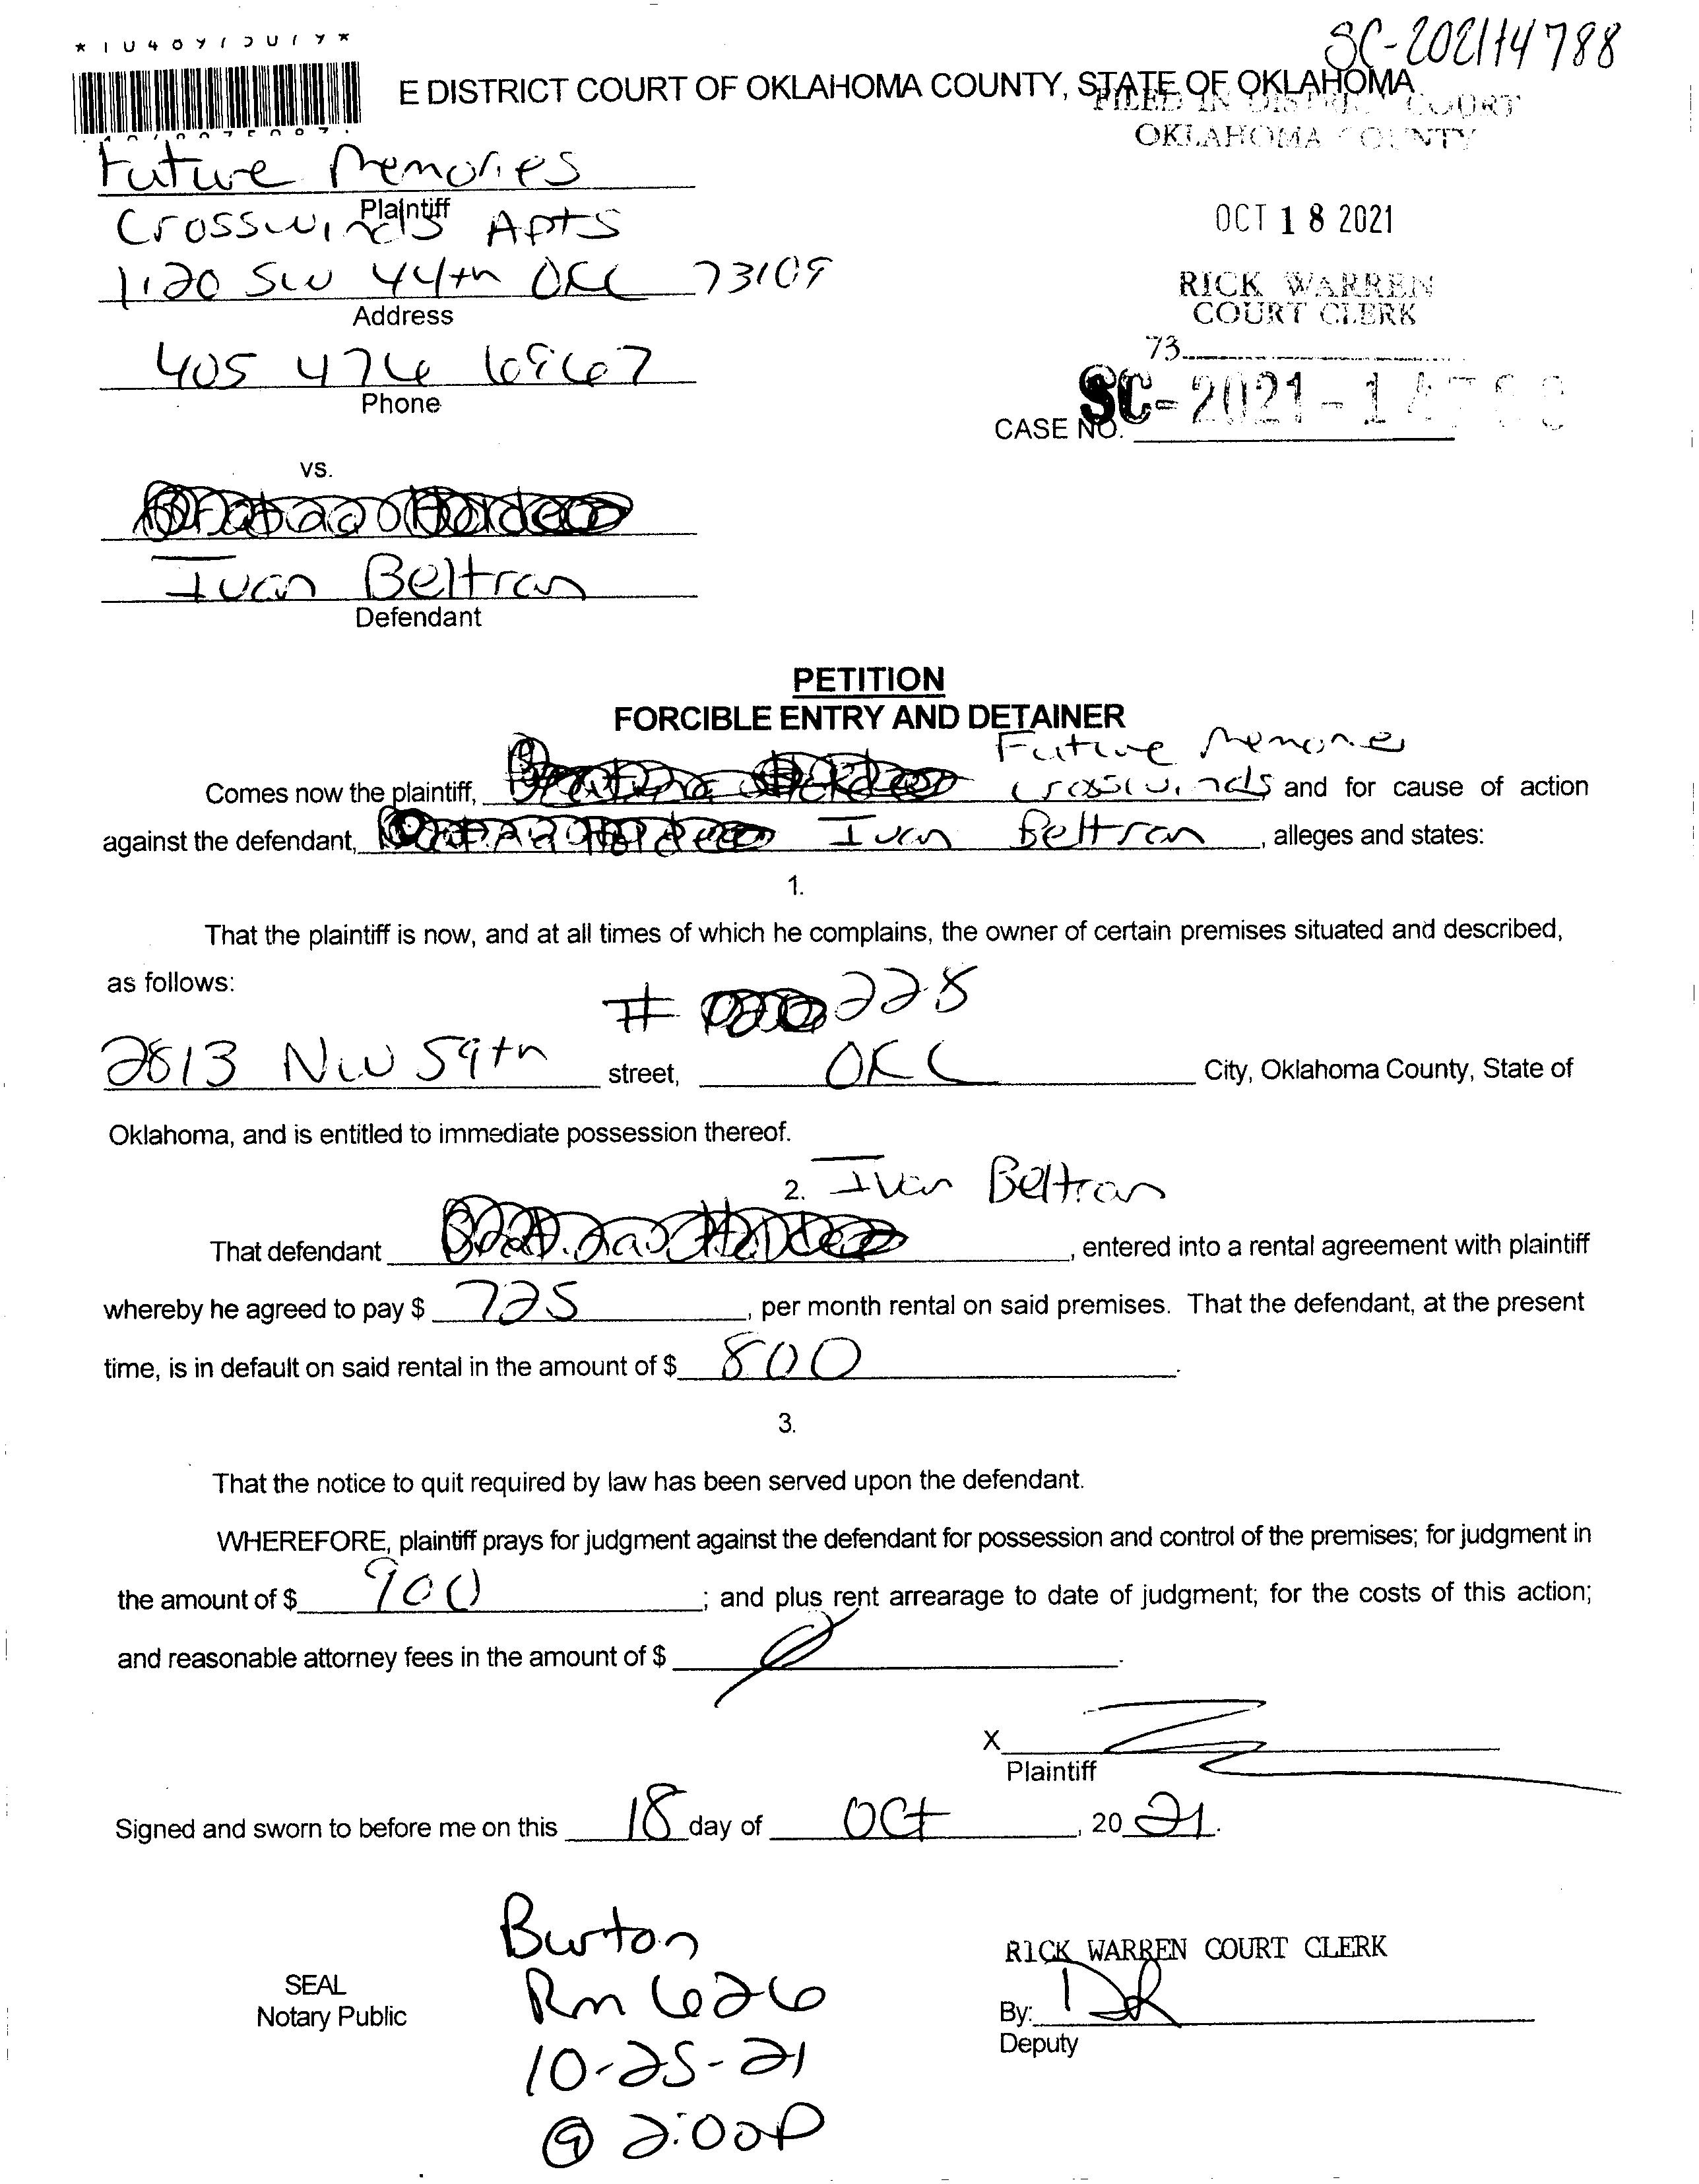 SC-2021-14788
E DISTRICT COURT OF OKLAHOMA COUNTY, STATE OF OKLAHOMA
FILED IN DISTRICT COURT
OKLAHOMA COUNTY
Future Memories
Plaintiff
Crosswinds Apts
OCT 18 2021
1120 SW 44th OKC 73109
Address
RICK WARREN
COURT CLERK
73
405 476 6967
Phone
SC-2021-14788
CASE NO.
vs.
Ivan Beltran
Defendant
PETITION
FORCIBLE ENTRY AND DETAINER
Future Memories
Comes now the plaintiff, Crosswinds and for cause of action
against the defendant, Ivan Beltran, alleges and states:
1.
That the plaintiff is now, and at all times of which he complains, the owner of certain premises situated and described,
as follows:
# 228
2813 NW 59th street, OKC City, Oklahoma County, State of
Oklahoma, and is entitled to immediate possession thereof.
2. Ivan Beltran
That defendant , entered into a rental agreement with plaintiff
whereby he agreed to pay $ 725, per month rental on said premises. That the defendant, at the present
time, is in default on said rental in the amount of $ 800.
3.
That the notice to quit required by law has been served upon the defendant.
WHEREFORE, plaintiff prays for judgment against the defendant for possession and control of the premises; for judgment in
the amount of $ 900; and plus rent arrearage to date of judgment; for the costs of this action;
and reasonable attorney fees in the amount of $ .
X
Plaintiff
Signed and sworn to before me on this 18 day of Oct, 2021.
Burton
Rm 626
10-25-21
@ 2:00P
SEAL
Notary Public
RICK WARREN COURT CLERK
By: DR
Deputy